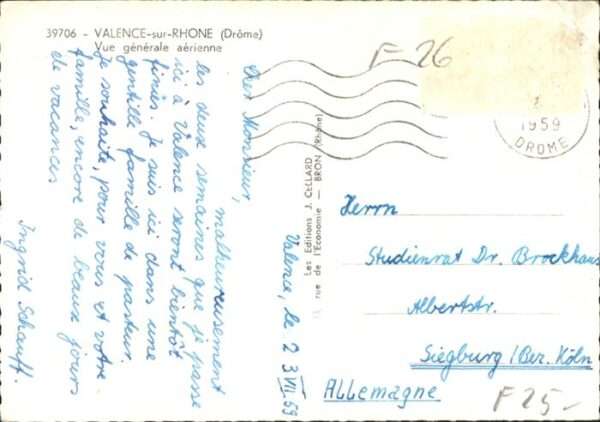 39706 - VALENCE-sur-RHONE (Drôme)
Vue générale aérienne
F 26
1959
DROME
Valence, le 23 VII. 59
Cher Monsieur,
malheureusement
les deux semaines que je passe
ici à Valence seront bientôt
finies. Je suis ici dans une
gentille famille de pasteur.
Je souhaite, pour vous et votre
famille, encore de beaux jours
de vacances
Ingrid Schauff.
Les Editions J. CELLARD
rue de l'Economie — BRON (Rhône)
Herrn
Studienrat Dr. Brockhaus
Albertstr.
Siegburg / Bez. Köln
Allemagne
F 25.-